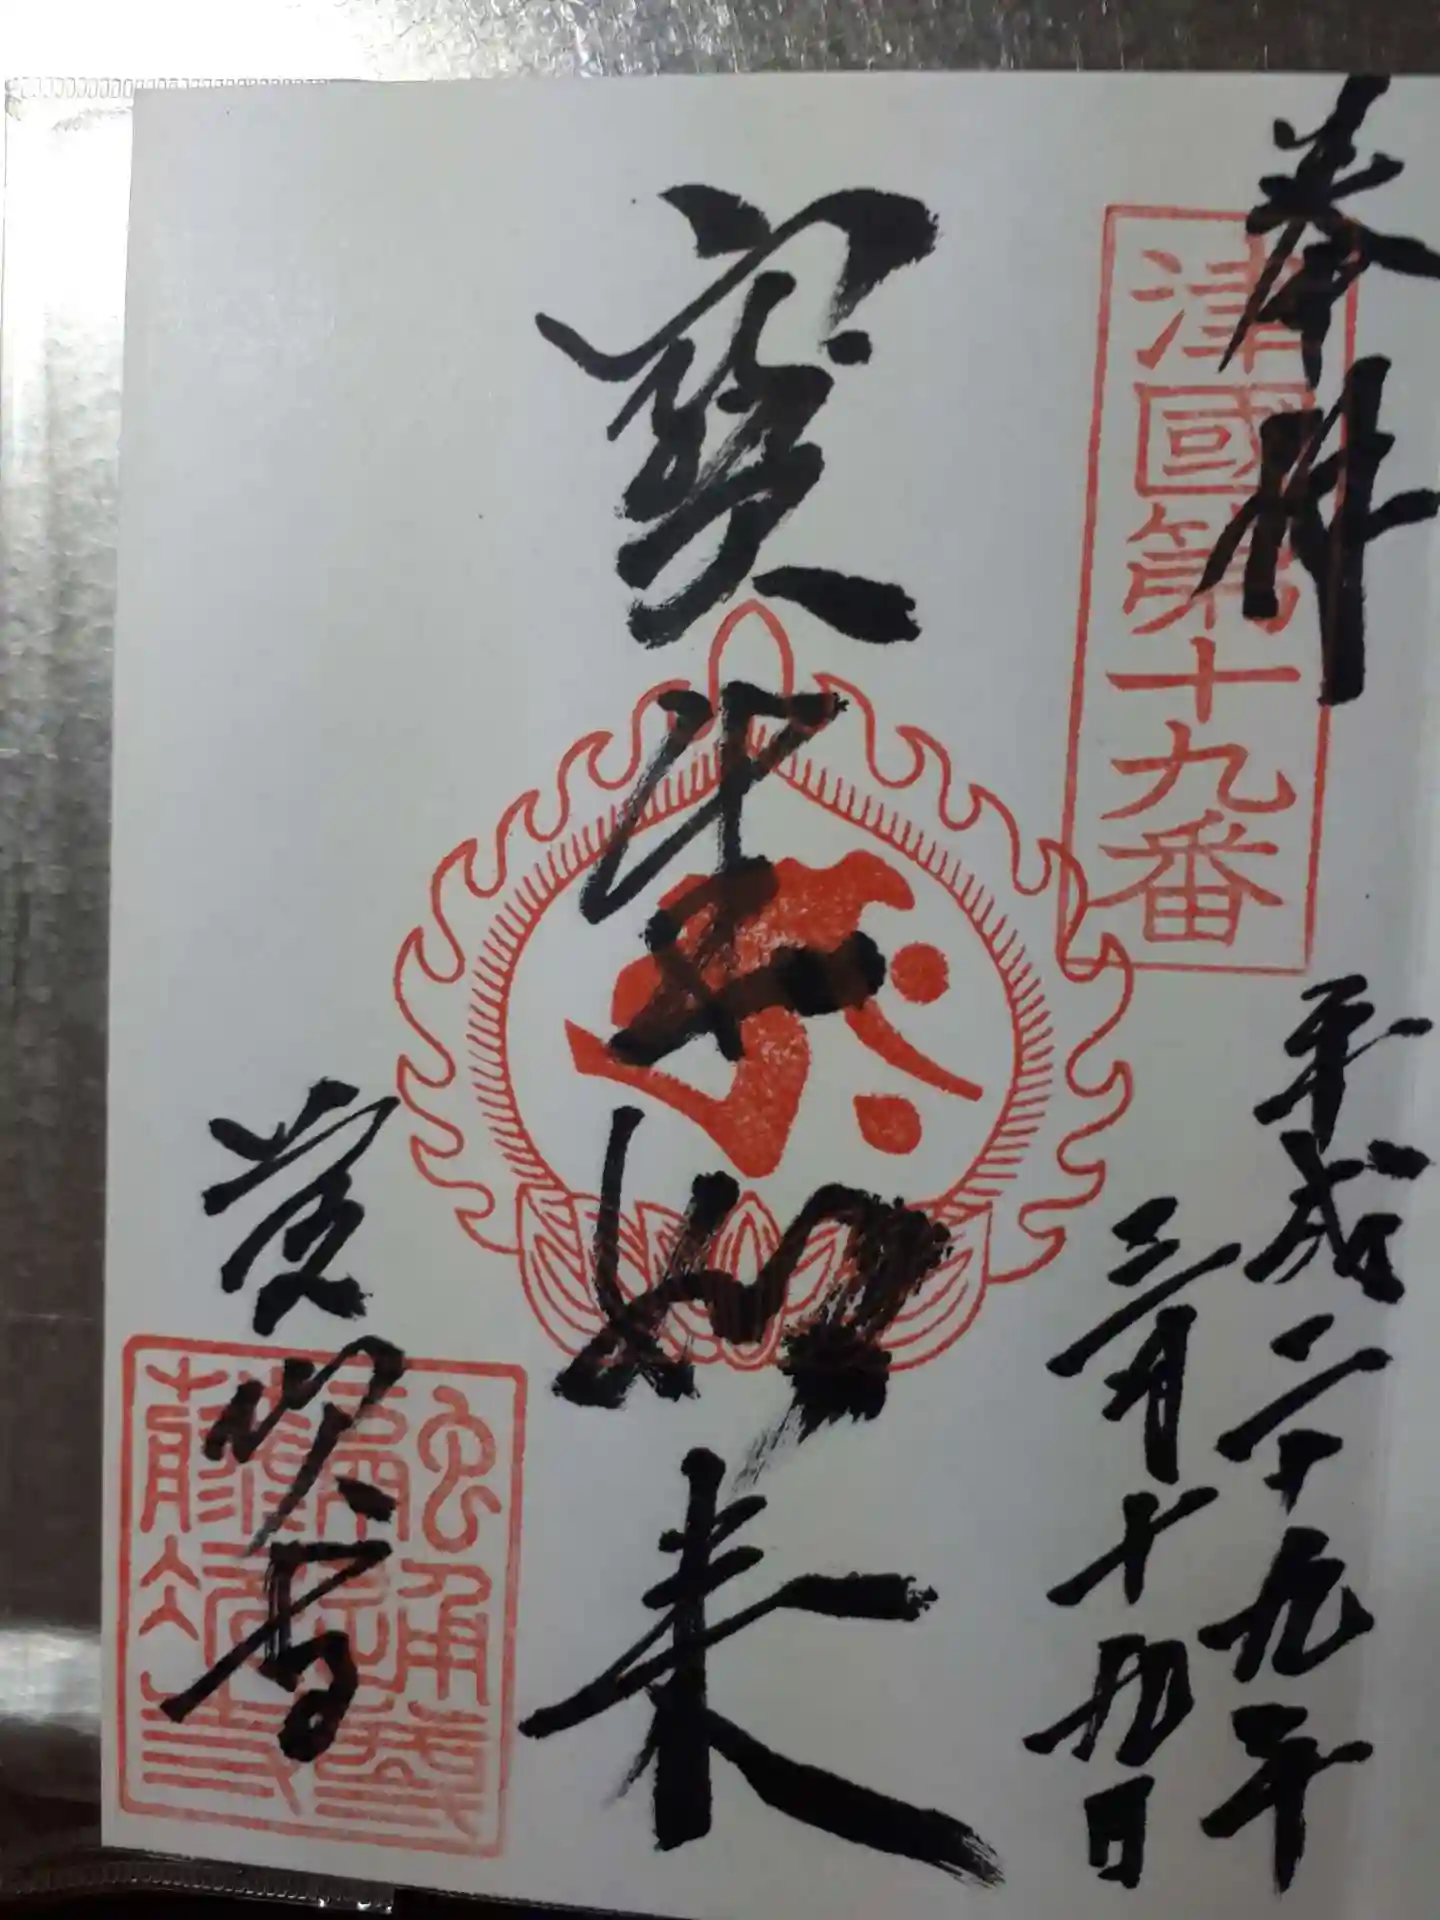 奉拝
津國第十九番
平成二十九年
三月十九日
寶生如来
藤次寺